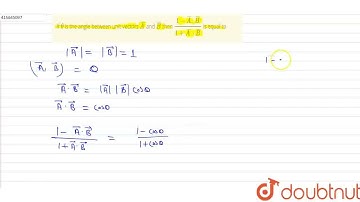 415645097
If θ is the angle between unit vectors A⃗ and B⃗, then (1 - A⃗.B⃗)/(1 + A⃗.B⃗) is equal to
|A⃗| = |B⃗| = 1
(A⃗, B⃗) = θ
A⃗.B⃗ = |A⃗| |B⃗| cosθ
A⃗.B⃗ = cosθ
(1 - A⃗.B⃗)/(1 + A⃗.B⃗) = (1 - cosθ)/(1 + cosθ)
1 -
doubtnut